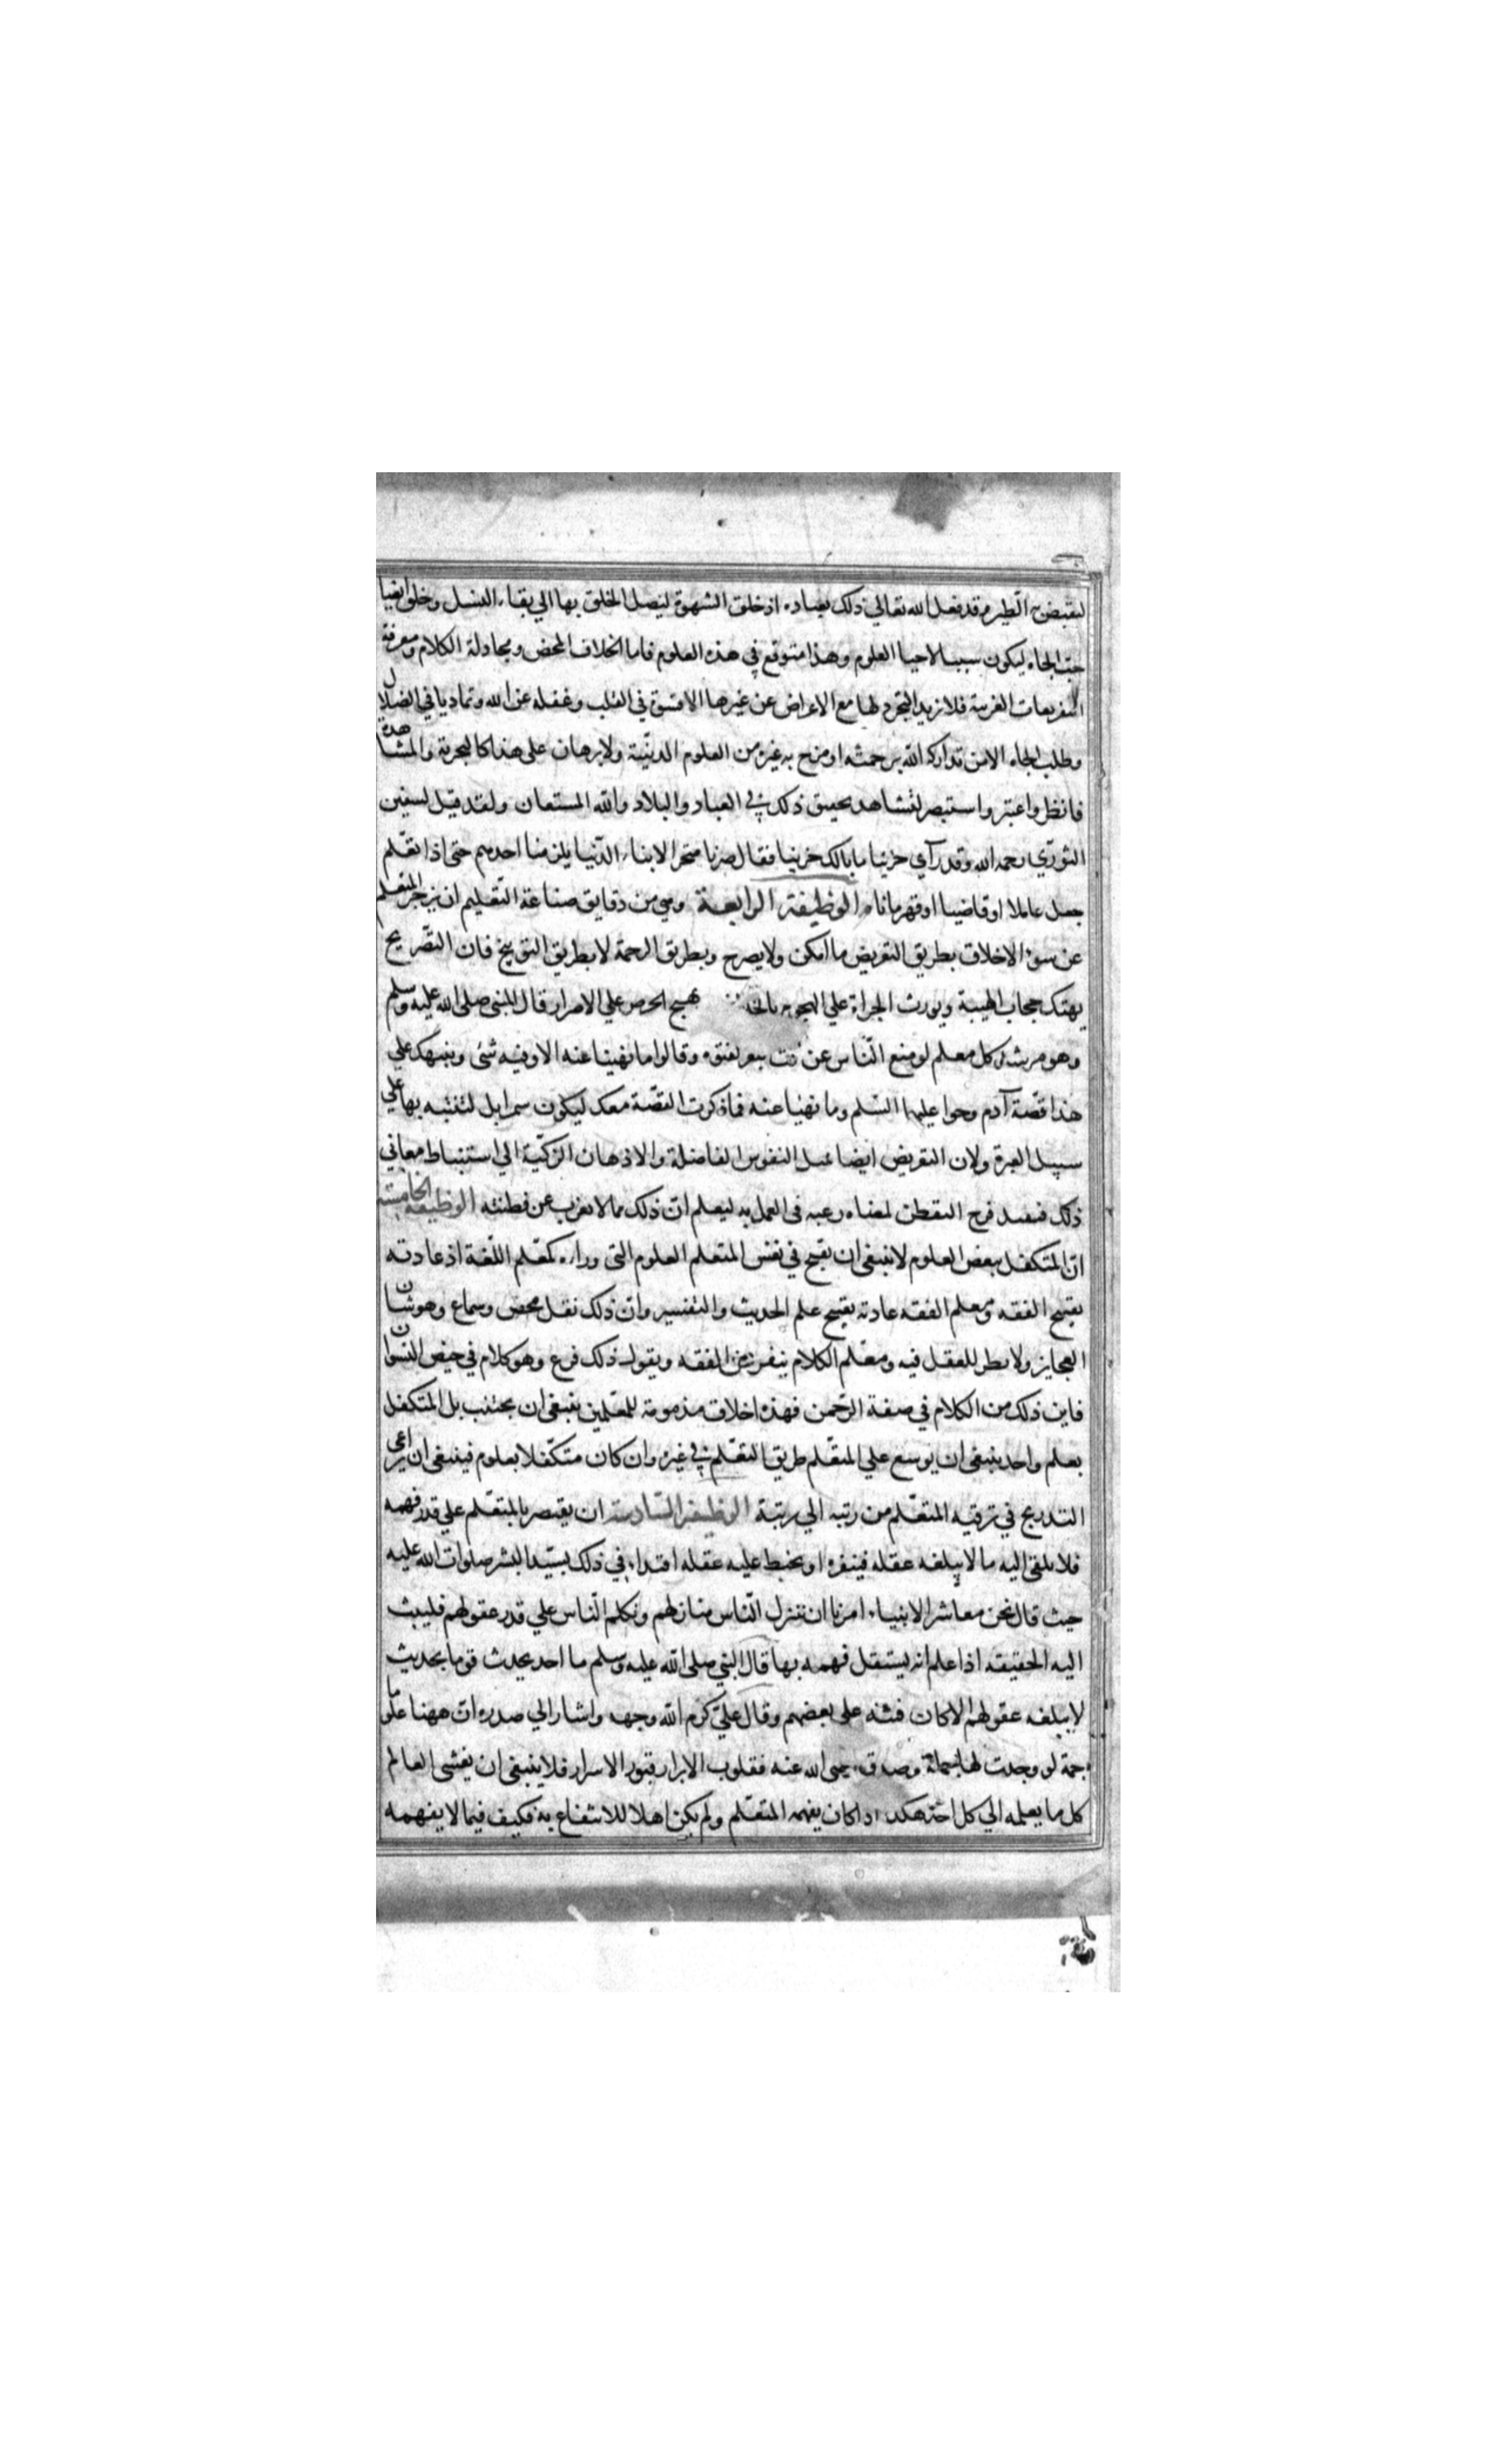 ليقبض به الطير وقد فعل الله تعالى ذلك بعباده اذ خلق الشهوة ليصل الخلق بها الي بقاء النسل وخلق ايضا
حب الجاه ليكون سببا لاحيا العلوم وهذا متوقع في هذه العلوم فاما الخلاف المحض ومجادلة الكلام ومعرفة
التفريعات الغريبة فلا يزيد التجرد لها مع الاعراض عن غيرها الا قسوة في القلب وغفلة عن الله وتماديا في الضلال
وطلب الجاه الا من تداركه الله برحمته او مزج به غيره من العلوم الدينية ولا برهان على هذا كالتجربة والمشاهدة
فانظر واعتبر واستبصر لتشاهد تحقيق ذلك في العباد والبلاد والله المستعان ولقد قيل لسفين
الثوري رحمه الله وقد رآي حزينا ما بالك حزينا فقال صرنا متجرا لابناء الدنيا يلزمنا احدهم حتى اذا تعلم
جعل عاملا او قاضيا او قهرمانا الوظيفة الرابعة وهي من دقايق صناعة التعليم ان يزجر المتعلم
عن سوء الاخلاق بطريق التعريض ما امكن ولا يصرح وبطريق الرحمة لا بطريق التوبيخ فان التصريح
يهتك حجاب الهيبة ويورث الجراة علي الهجوم يهيج الحرص علي الاصرار قال النبي صلى الله عليه وسلم
وهو مرشد كل معلم لو منع الناس عن فت البعر لفتوه وقالوا ما نهينا عنه الا وفيه شئ وينبهك علي
هذا قصة آدم وحوا عليهما السلم وما نهيا عنه فاذكرت القصة معك ليكون سمرا بل لتنتبه بها علي
سبيل العبرة ولان التعريض ايضا يميل النفوس الفاضلة والاذهان الزكية الي استنباط معاني
ذلك فيفيد فرح التفطن لمعناه رغبة في العمل به ليعلم ان ذلك مما لا يعزب عن فطنته الوظيفة الخامسة
ان المتكفل ببعض العلوم لا ينبغي ان يقبح في نفس المتعلم العلوم التي وراءه كمعلم اللغة اذ عادته
تقبيح الفقه ومعلم الفقه عادته تقبيح علم الحديث والتفسير وان ذلك نقل محض وسماع وهو شان
العجايز ولا نظر للعقل فيه ومعلم الكلام ينفر عن الفقه ويقول ذلك فرع وهو كلام في حيض النسوان
فاين ذلك من الكلام في صفة الرحمن فهذه اخلاق مذمومة للمعلمين ينبغي ان يجتنب بل المتكفل
بعلم واحد ينبغي ان يوسع علي المتعلم طريق التعلم في غيره وان كان متكفلا بعلوم فينبغي ان يراعي
التدريج في ترقيه المتعلم من رتبه الي رتبة الوظيفة السادسة ان يقتصر بالمتعلم علي قدر فهمه
فلا يلقي اليه ما لا يبلغه عقله فينفره او يخبط عليه عقله اقتداء في ذلك بسيد البشر صلوات الله عليه
حيث قال نحن معاشر الانبياء امرنا ان ننزل الناس منازلهم ونكلم الناس علي قدر عقولهم فليبث
اليه الحقيقه اذا علم انه يستقل فهمه بها قال النبي صلى الله عليه وسلم ما احد يحدث قوما بحديث
لا يبلغه عقولهم الا كان فتنه على بعضهم وقال علي كرم الله وجهه واشار الي صدره ان ههنا علوما
جمة لو وجدت لها حملة وصدق رضي الله عنه فقلوب الابرار قبور الاسرار فلا ينبغي ان يفشى العالم
كل ما يعلمه الي كل احد هكذا اذا كان يفهمه المتعلم ولم يكن اهلا للانتفاع به فكيف فيما لا يفهمه